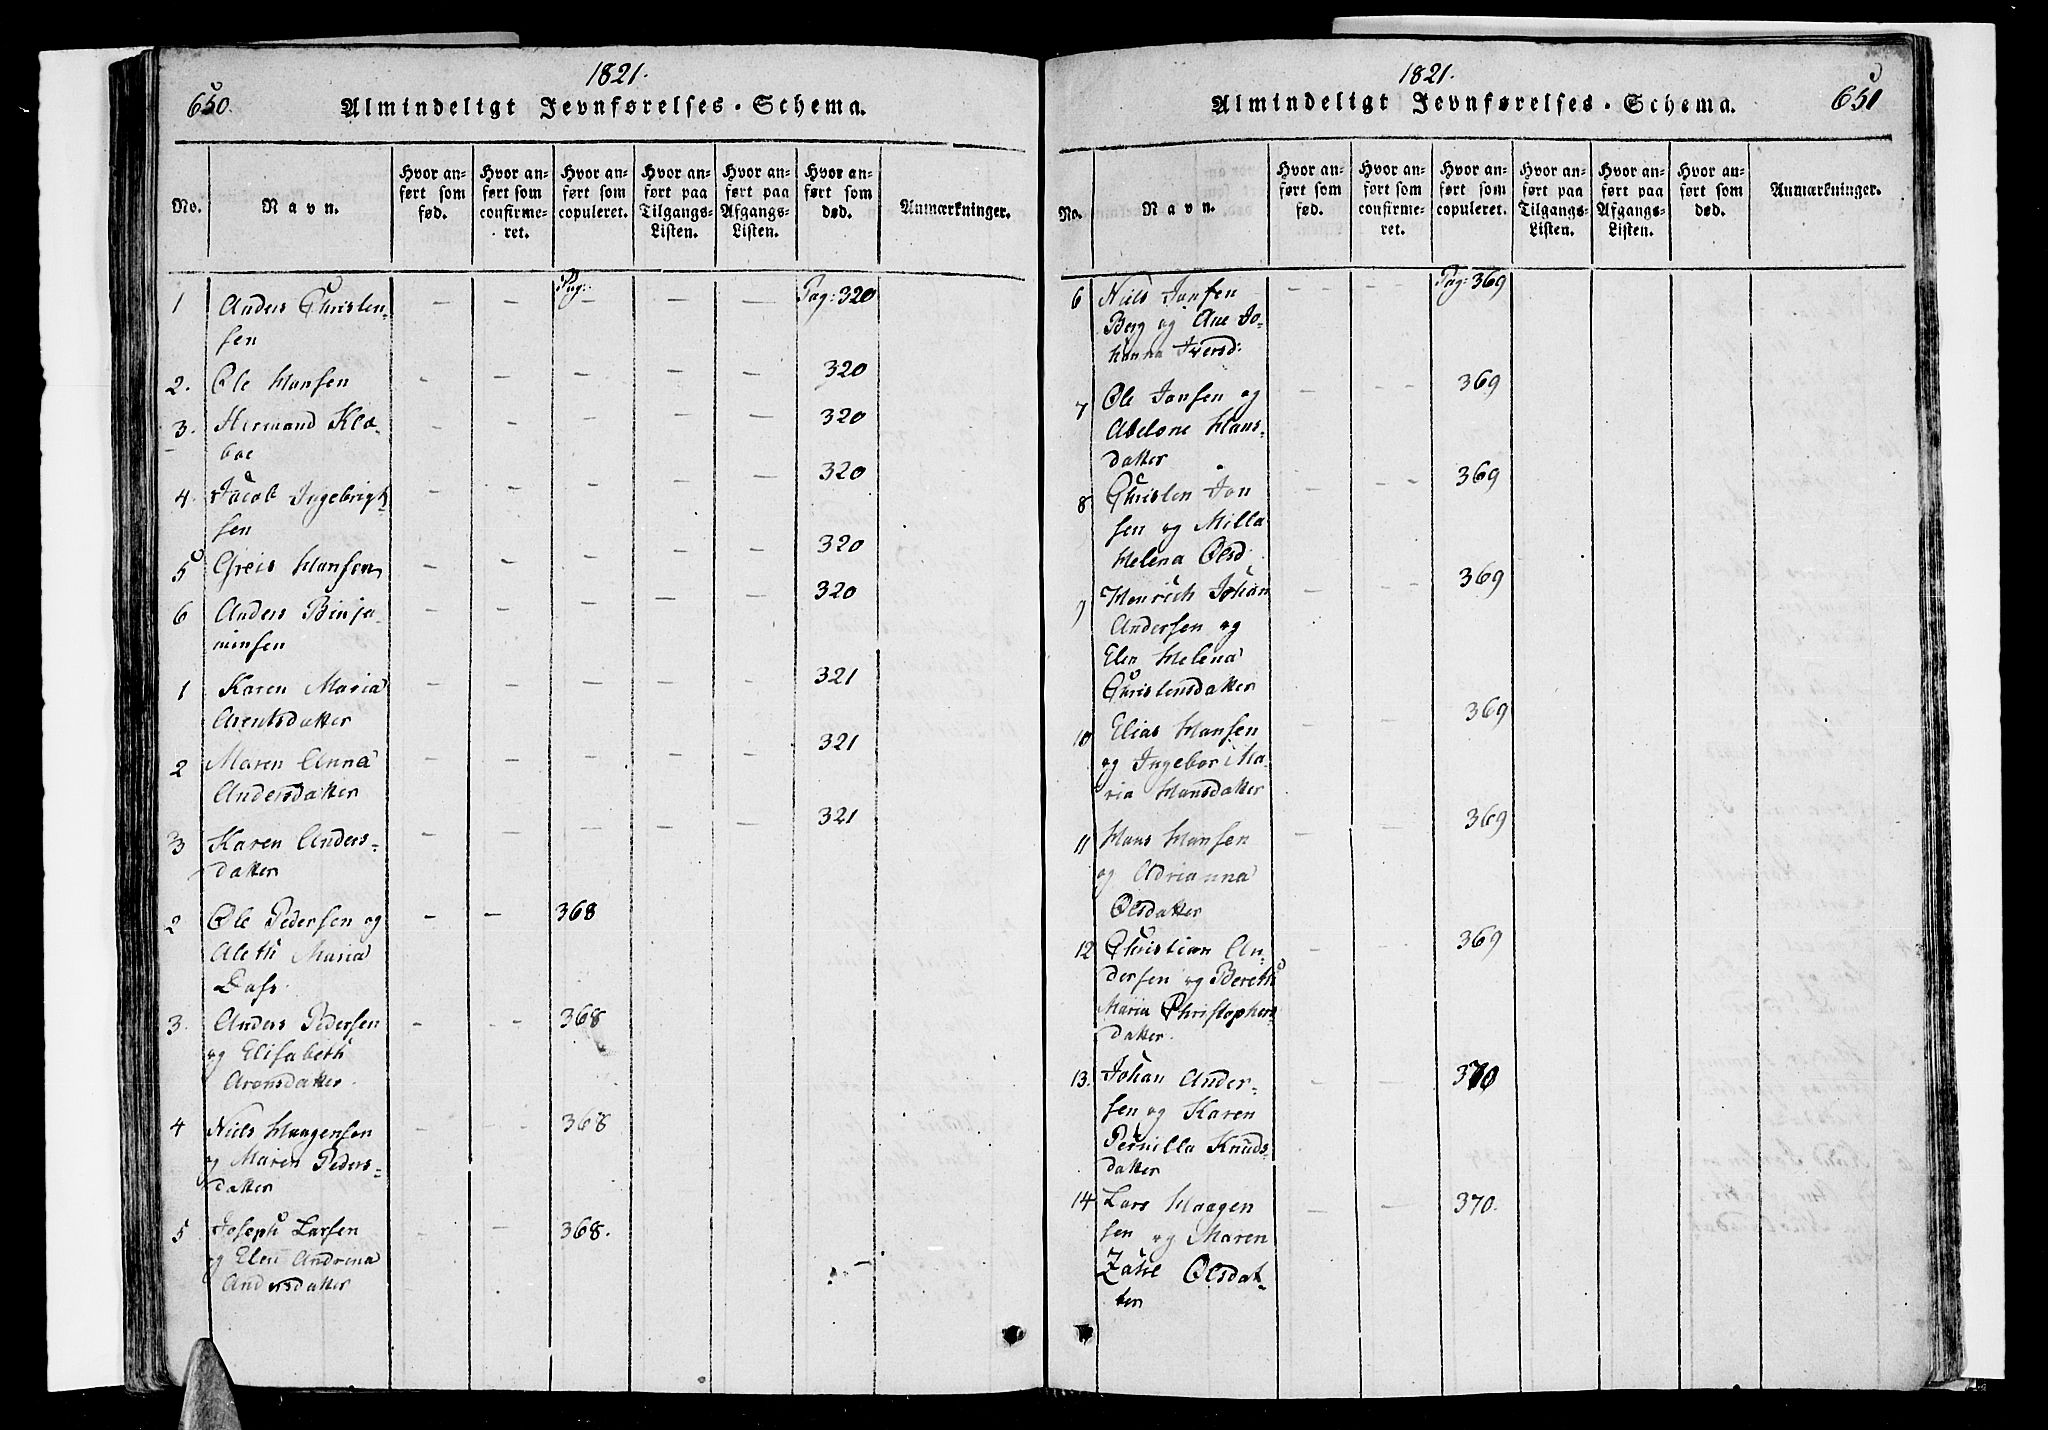 1821.
650.
Almindeligt Jevnførelses-Schema.
No.
Navn.
Hvor an-
ført som
fød.
Hvor an-
ført som
confirme-
ret.
Hvor an-
ført som
copuleret.
Hvor an-
ført paa
Tilgangs-
Listen.
Hvor an-
ført paa
Afgangs-
Listen.
Hvor an-
ført som
død.
Anmærkninger.
1 Anders Christen- — — Pag: — — — Pag: 320
sen
2. Ole Hansen — — — — — 320
3. Hermand Kla- — — — — — 320
boe
4. Jacob Ingebrigt — — — — — 320
sen
5 Greis Hansen — — — — — 320
6 Anders Binja- — — — — — 320
minsen
1 Karen Maria — — — — — 321
Arentsdatter
2 Maren Anna — — — — — 321
Andersdatter
3 Karen Anders- — — — — — 321
datter
2 Ole Pedersen og — — 368
Aleth Maria
Dass.
3. Anders Pedersen — — 368
og Elisabeth
Aronsdatter.
4 Niels Haagensen — — 368
og Maren Peders-
datter
5 Joseph Larsen — — 368.
og Elen Andrina
Andersdatter
1821.
651
Almindeligt Jevnførelses-Schema.
No.
Navn.
Hvor an-
ført som
fød.
Hvor an-
ført som
confirme-
ret.
Hvor an-
ført som
copuleret.
Hvor an-
ført paa
Tilgangs-
Listen.
Hvor an-
ført paa
Afgangs-
Listen.
Hvor an-
ført som
død.
Anmærkninger.
6 Niels Jansen — — Pag: 369
Berg og Ane Jo-
hanna Iversd:
7 Ole Jonsen og — — 369
Abelone Hans-
datter
8 Christen Jon — — 369
sen og Milla
Helena Olsd:
9 Henrich Johan — — 369
Andersen og
Elen Helena
Christensdatter
10 Elias Hansen — — 369
og Ingebor Ma-
ria Hansdatter
11 Hans Hansen — — 369
og Adrianna
Olsdatter
12 Christian An- — — 369
dersen og Bereth
Maria Christophers
datter.
13. Johan Ander- — — 370
sen og Karen
Pernilla Knuds-
datter
14 Lars Haagen — — 370.
sen og Maren
Zakel Olsdat-
ter